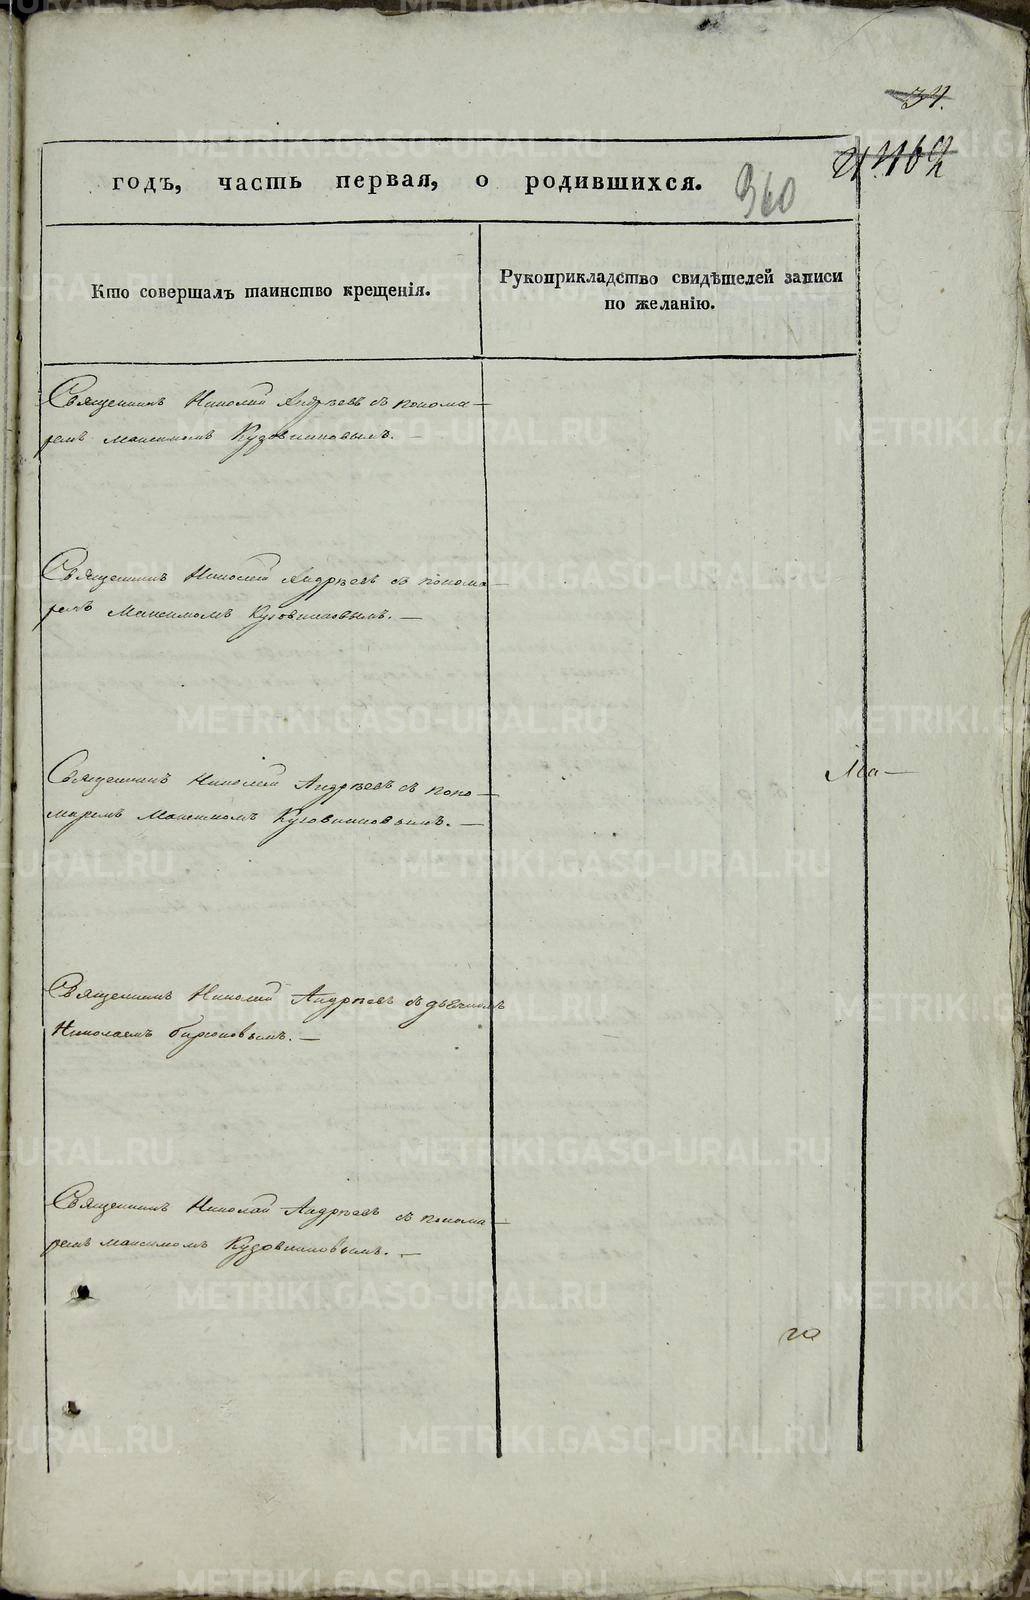 34.
годъ, часть первая, о родившихся.
360
Кто совершалъ таинство крещенія.
Рукоприкладство свидѣтелей записи
по желанію.
Священникъ Николай Андреевъ съ понома-
ремъ Максимомъ Кузовниковымъ. —
Священникъ Николай Андреевъ съ понома-
ремъ Максимомъ Кузовниковымъ. —
Священникъ Николай Андреевъ съ поно-
маремъ Максимомъ Кузовниковымъ. —
Ма-
Священникъ Николай Андреевъ съ дьячкомъ
Николаемъ Бирюковымъ. —
Священникъ Николай Андреевъ съ понома-
ремъ Максимомъ Кузовниковымъ. —
го
METRIKI.GASO-URAL.RU